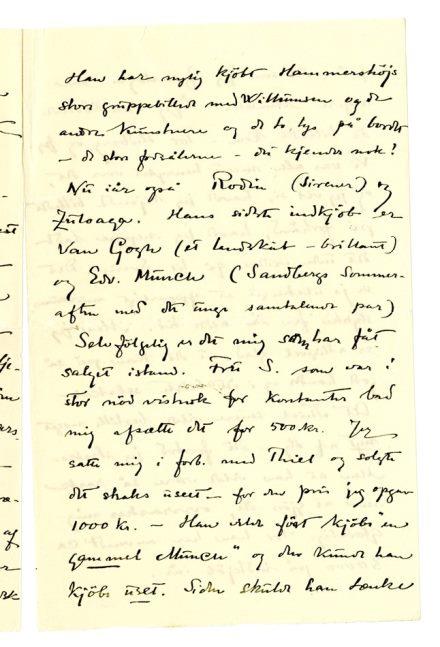 Han har nylig kjöbt Hammershöjs
store gruppebillede med Willumsen og de
andre kunstnere og de to lys på bordet
– de store fodsålerne – du kjender nok!
Nu iår også Rodin (Sirener) og
Zuloaga. Hans sidste indkjöb er
Van Gogh (et landskab – brillant)
og Edv. Munch (Sandbergs Sommer-
aften med det unge samtalende par)
Selvfölgelig er det mig som har fåt
salget istand. Fru S. som var i
stor nöd vistnok for kontanter bad
mig afsætte det for 500 kr. Jeg
satte mig i forb. med Thiel og solgte
det straks uset – for den pris jeg opgav
1000 kr. – Han vilde først kjöbe "en
gammel Munch" og den kunde han
kjöbe uset. Siden skulde han tænke